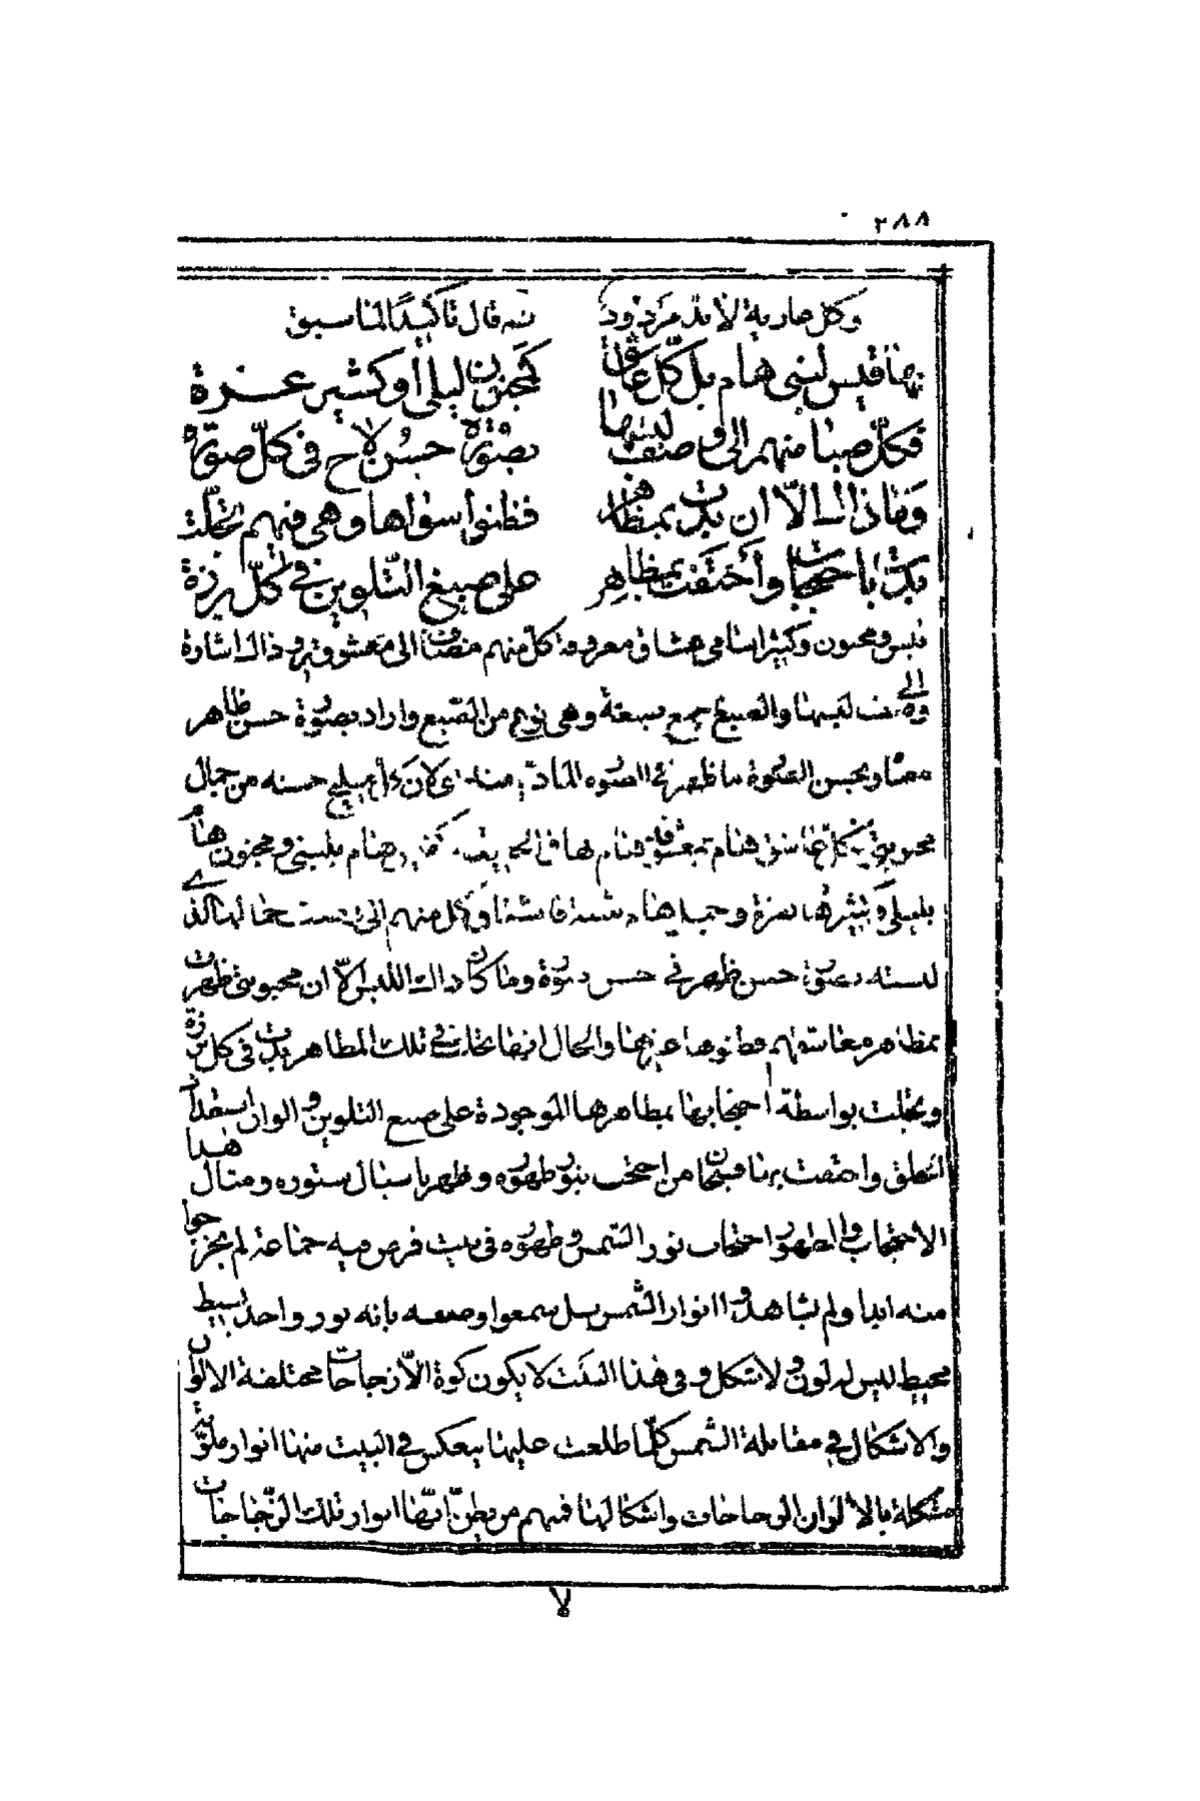 ٢٨٨
وكل عارية لا بد مردود ثم قال تأكيدا لما سبق
بها قيس لبنى هام بل كل عاشق كمجنون ليلى أو كثير عزة
فكل صبا منهم الى وصف لبسها بصورة حسن لاح في كل صورة
وما ذاك الا ان بدت بمظاهر فظنوا سواها وهي فيهم تجلت
بدت باحتجاب وأختفت بمظاهر على صبغ التلوين في كل برزة
قيس ومجنون وكثير اسامي عشاق معروفة كل منهم مضاف الى معشوقته وذاك اشارة
الى وصف لبسها والصبغ جمع صبغة وهي نوع من الصبغ واراد بصورة حسن ظاهر
معناه وبحسن الصورة ما ظهر في الصورة المادية منه اي لان كل مليح حسنه من جمال
محبوبتي كل عاشق هام بمعشوقة هام بها في الحقيقة كقيس هام بلبنى ومجنون هام
بليلى وكثير هام بعزة وكل منهم الى لبسها الذي
لبسته بصورة حسن ظهر في حسن صورة وما كان ذاك اللبس الا ان محبوبتي ظهرت
بمظاهر معاشقهم فظنوها غيرها والحال انها تجلت في تلك المظاهر بدت في كل برزة
وتجلت بواسطة احتجابها بمظاهرها الموجودة على صبغ التلوين والوان
المطلق واختفت بها فسبحان من احتجب بنور ظهوره وظهر باسبال ستوره ومثال هذا
الاحتجاب والظهور احتجاب نور الشمس وظهوره في بيت فرض فيه جماعة لم يخرجوا
منه ابدا ولم يشاهدوا انوار الشمس بل سمعوا وصفه بانه نور واحد بسيط
محيط ليس له لون ولا شكل وفي هذا البيت لا يكون كوة الا زجاجات مختلفة الالوان
والاشكال في مقابلة الشمس كلما طلعت عليها ينعكس في البيت منها انوار ملونة
مشكلة بالالوان الزجاجات واشكالها فمنهم من يظن انها انوار تلك الزجاجات
لا